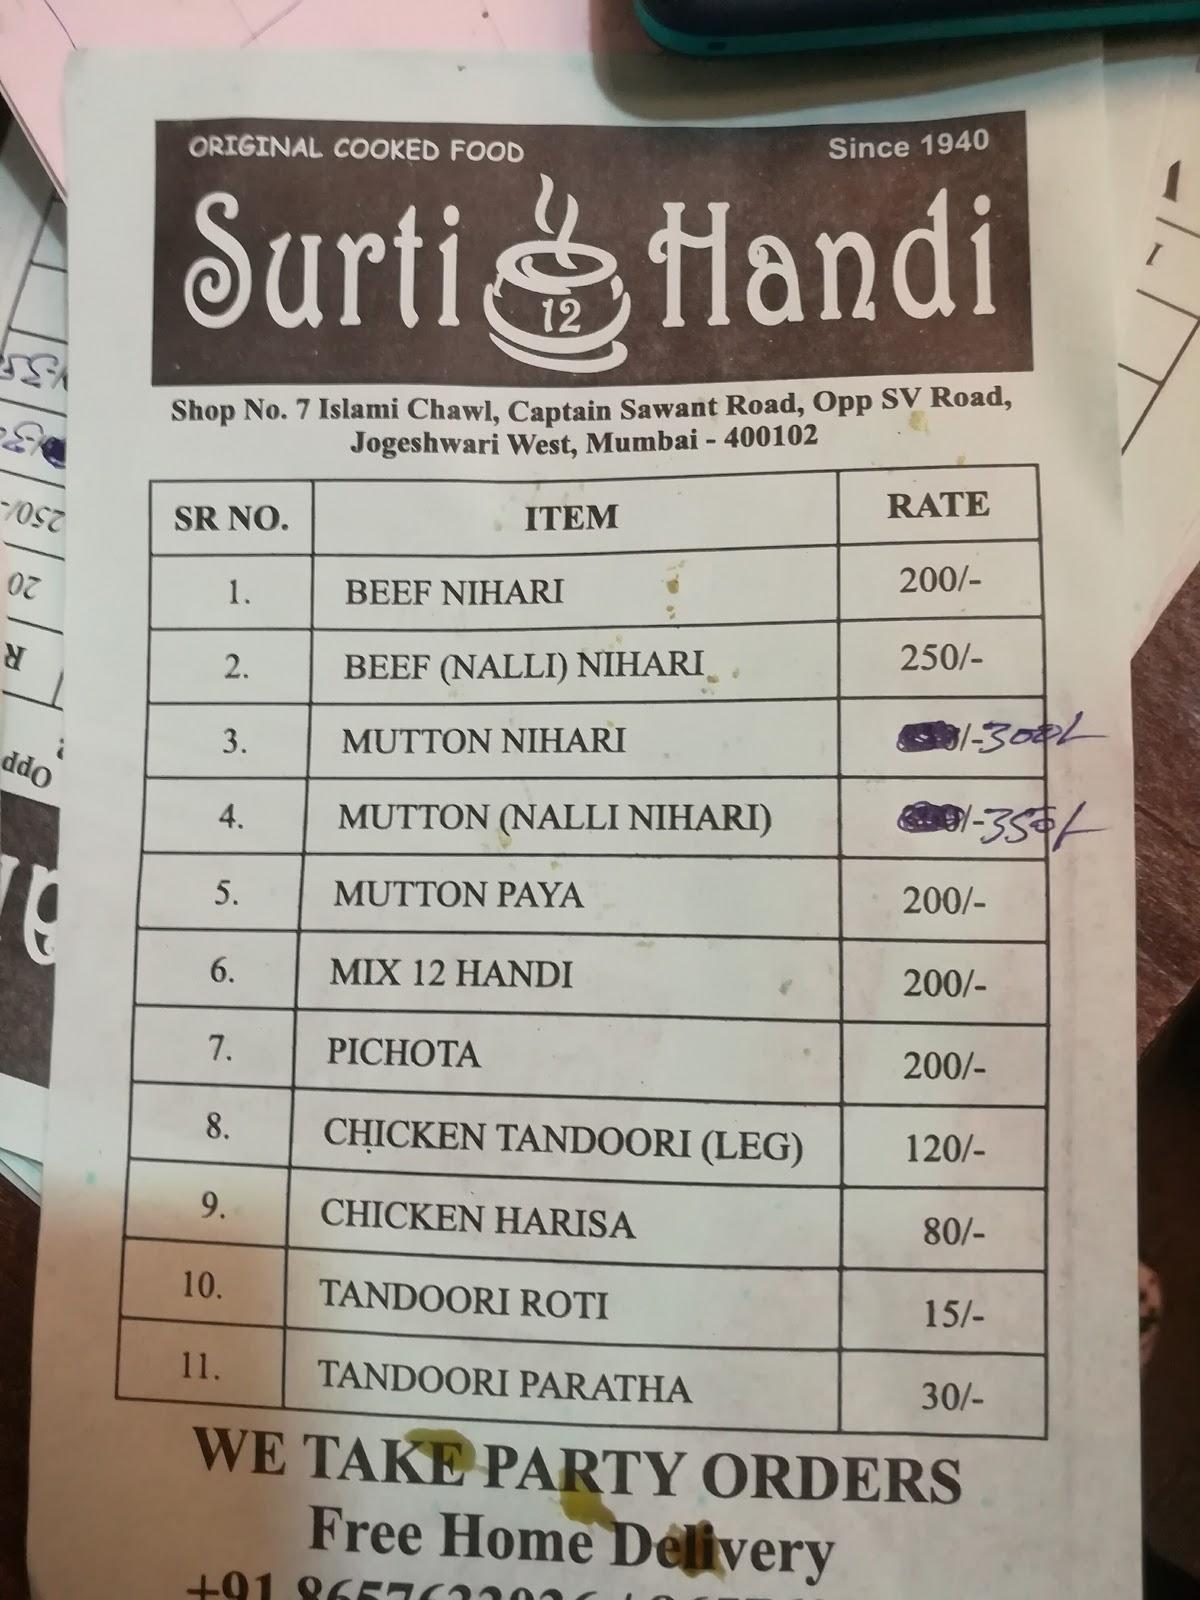 ORIGINAL COOKED FOOD Since 1940
Surti 12 Handi
Shop No. 7 Islami Chawl, Captain Sawant Road, Opp SV Road,
Jogeshwari West, Mumbai - 400102
SR NO. ITEM RATE
1. BEEF NIHARI 200/-
2. BEEF (NALLI) NIHARI 250/-
3. MUTTON NIHARI /-300/-
4. MUTTON (NALLI NIHARI) /-350/-
5. MUTTON PAYA 200/-
6. MIX 12 HANDI 200/-
7. PICHOTA 200/-
8. CHICKEN TANDOORI (LEG) 120/-
9. CHICKEN HARISA 80/-
10. TANDOORI ROTI 15/-
11. TANDOORI PARATHA 30/-
WE TAKE PARTY ORDERS
Free Home Delivery
+91
250/-
20
R
Opp